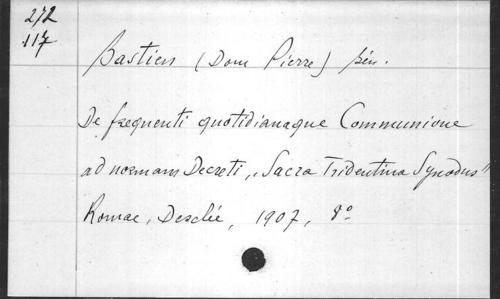 272
117
Bastien (Dom Pierre) bén.
De frequenti quotidianaque Communione
ad normam Decreti „Sacra Tridentina Synodus"
Romae, Desclée, 1907, 8º